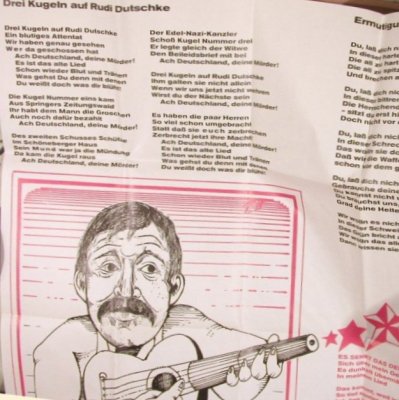 Drei Kugeln auf Rudi Dutschke
Drei Kugeln auf Rudi Dutschke
Ein blutiges Attentat
Wir haben genau gesehen
Wer da geschossen hat
Ach Deutschland, deine Mörder!
Es ist das alte Lied
Schon wieder Blut und Tränen
Was gehst Du denn mit denen
Du weißt doch was dir blüht!
Die Kugel Nummer eins kam
Aus Springers Zeitungswald
Ihr habt dem Mann die Groschen
Auch noch dafür bezahlt
Ach Deutschland, deine Mörder!
Des zweiten Schusses Schütze
Im Schöneberger Haus
Sein Mund war ja die Mündung
Da kam die Kugel raus
Ach Deutschland, deine Mörder!
Der Edel-Nazi-Kanzler
Schoß Kugel Nummer drei
Er legte gleich der Witwe
Den Beileidsbrief mit bei
Ach Deutschland, deine Mörder!
Drei Kugeln auf Rudi Dutschke
Ihm galten sie nicht allein
Wenn wir uns jetzt nicht wehren
Wirst du der Nächste sein
Ach Deutschland, deine Mörder!
Es haben die paar Herren
So viel schon umgebracht
Statt daß sie euch zerbrechen
Zerbrecht jetzt ihre Macht!
Ach Deutschland, deine Mörder!
Es ist das alte Lied
Schon wieder Blut und Tränen
Was gehst du denn mit denen
Du weißt doch was dir blüht!
Ermutigu
Du, laß dich nich
In dieser harte
Die all zu hart
Die all zu spitz
Und brechen a
Du, laß dich nich
In dieser bittre
Die Herrschend
- sitzt du erst hi
Doch nicht vor
Du, laß dich nich
In dieser Schre
Das woll'n sie do
Daß wir die Waffe
Schon vor dem
Du, laß dich nich
Gebrauche deine
Du kannst nicht
Du brauchst uns
Grad deine Heite
Wir woll'n es nich
In dieser Schwei
Das Grün bricht
Wir woll'n das all
Dann wissen sie
ES SENKT DAS DE
Sich über mein
Es dunkelt übermä
In meinem Lied